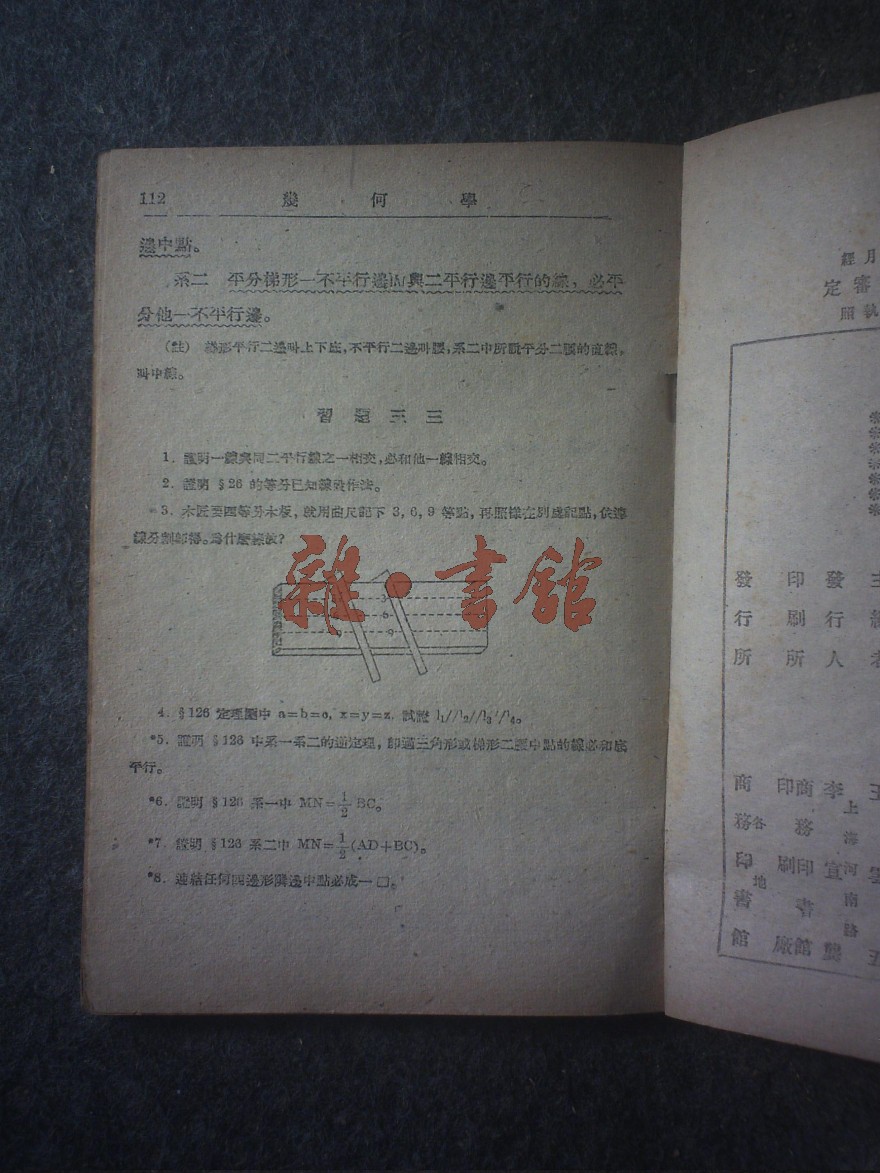 112 幾何學
邊中點。
系二 平分梯形一不平行邊而與二平行邊平行的線，必平
分他一不平行邊。
(註) 梯形平行二邊叫上下底，不平行二邊叫腰，系二中所說平分二腰的直線，
叫中線。
習題三三
1. 證明一線與同二平行線之一相交，必和他一線相交。
2. 證明 §26 的等分已知線段作法。
3. 木匠要四等分木板，就用曲尺記下 3, 6, 9 等點，再照樣在別處記點，依連
線分割即得。爲什麼這樣做？
雜·書館
4. §126 定理圖中 a=b=c, x=y=z, 試證 l₁//l₂//l₃//l₄。
*5. 證明 §126 中系一系二的逆定理，卽過三角形或梯形二腰中點的線必和底
平行。
*6. 證明 §126 系一中 MN=1/2 BC。
*7. 證明 §126 系二中 MN=1/2(AD+BC)。
*8. 連結任何四邊形鄰邊中點必成一□。
月經
審定
執照
主
發行人
印刷所
發行所
王雲五
李宣龔
上海河南路
商務印書館
印刷廠
各地
商務印書館